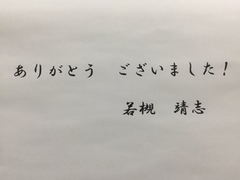 ありがとう ございました!
若槻 靖志